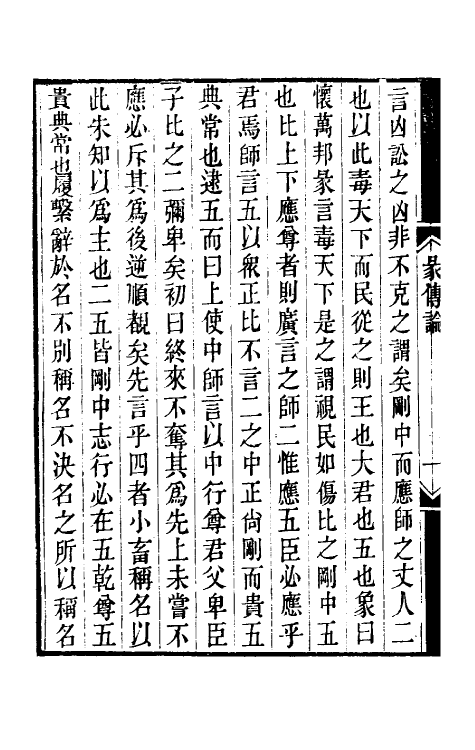 彖傳論
十
言凶訟之凶非不克之謂矣剛中而應師之丈人二
也以此毒天下而民從之則王也大君也五也象曰
懷萬邦彖言毒天下是之謂視民如傷比之剛中五
也比上下應尊者則廣言之師二惟應五臣必應乎
君焉師言五以衆正比不言二之中正尙剛而貴五
典常也逮五而曰上使中師言以中行尊君父卑臣
子比之二彌卑矣初曰終來不奪其爲先上未嘗不
應必斥其爲後逆順覩矣先言乎四者小畜稱名以
此未知以爲主也二五皆剛中志行必在五乾尊五
貴典常也履繫辭於名不別稱名不決名之所以稱名